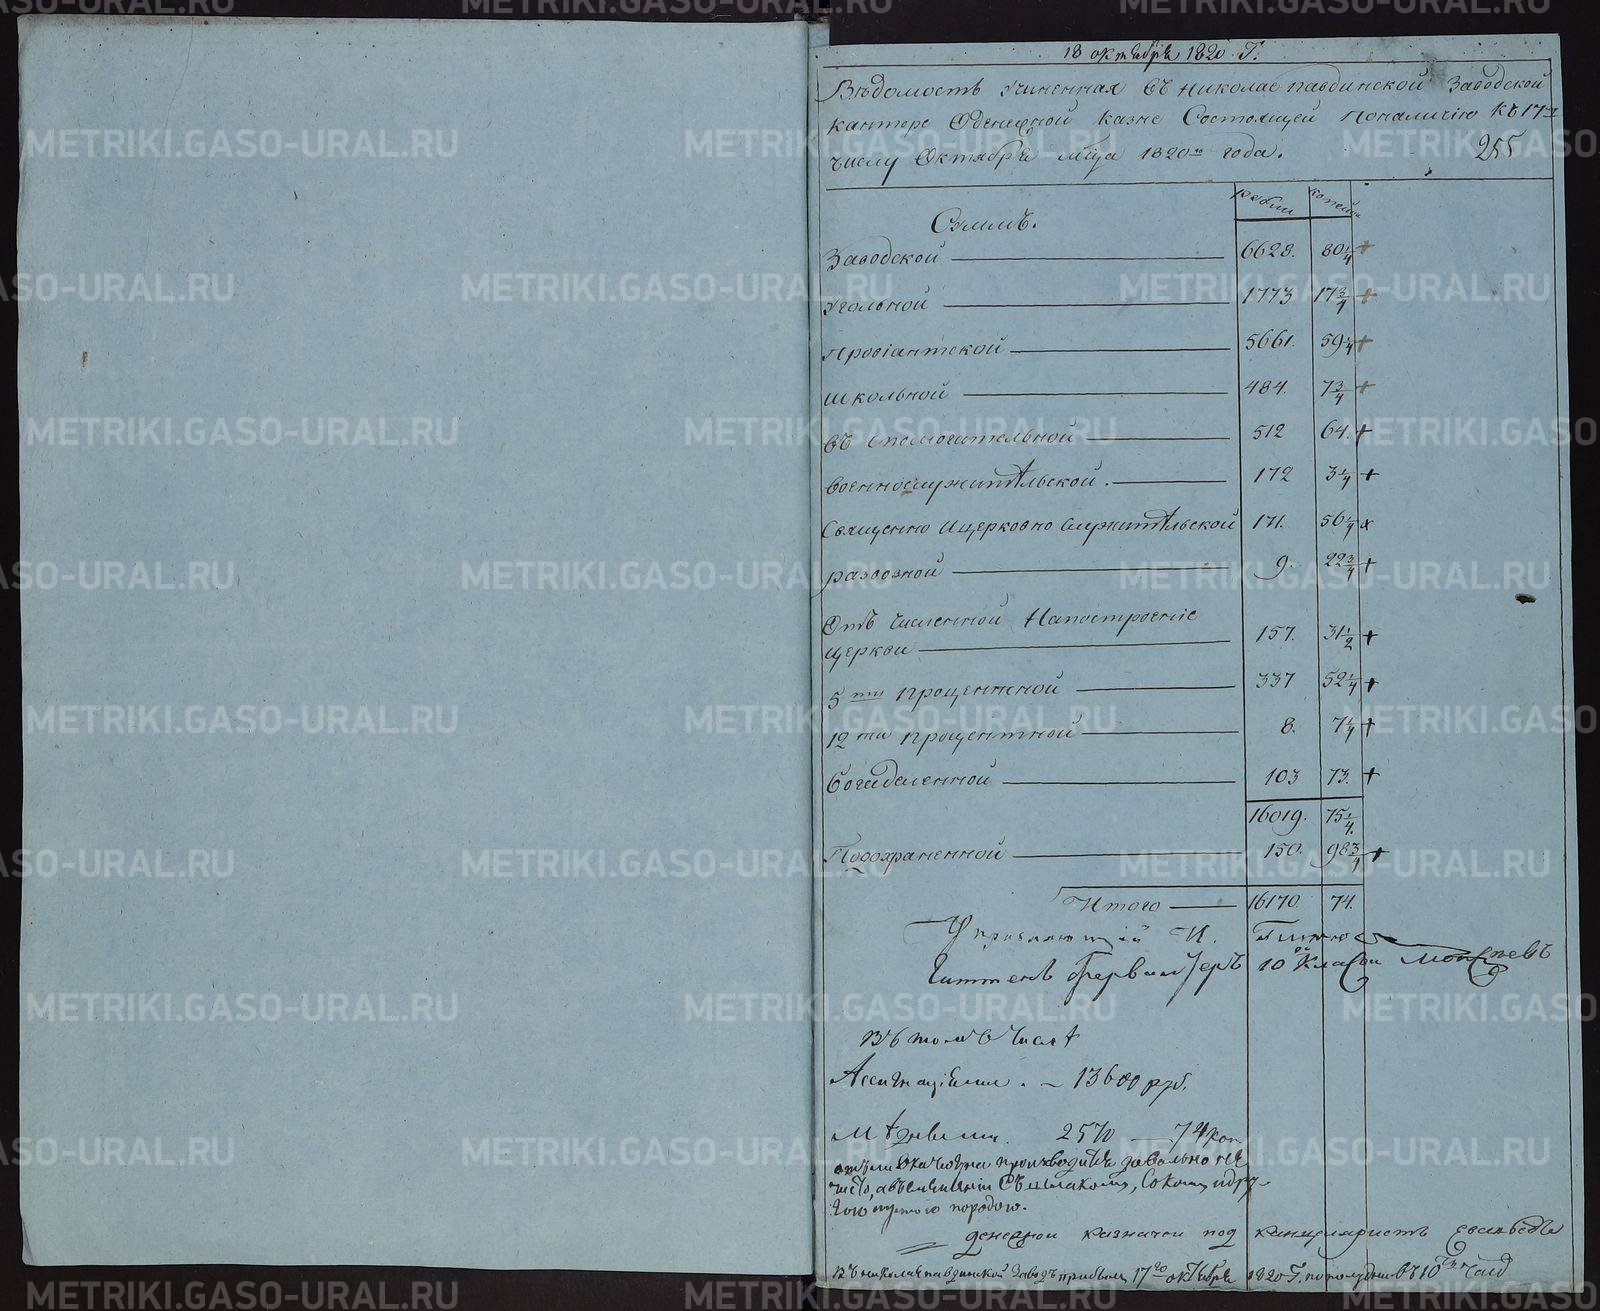 18 октября 1820 Г.
Вѣдомость Учиненная Въ николае павдинской Заводской
канторе Оденежной казне Состоящей Поналичію Къ 17му
числу Октября мца 1820го года.
255
Суммъ.
рубли
копейки
Заводской 6628. 80 1/4 +
Угольной 1773 17 3/4 +
Провіантской 5661. 59 1/4 +
школьной 484. 7 3/4 +
въ спомогательной 512 64. +
военнослужитѣльской. 172 3 1/4 +
Священно Ицерковно Служитѣльской 171. 56 1/4 x
развозной 9. 22 3/4 +
Отъ численной Напостроеніе
церкви 157. 31 1/2 +
5ти процентной 337 52 1/4 +
12ти процентной 8. 7 1/4 +
богадаленной 103 73. +
16019. 75 1/4.
Подохраненной 150. 98 3/4 +
Итого 16170. 74.
Управляющій И.
10го Класса
Въ томъ числѣ
Ассигнаціями. 13600 руб.
Мѣдными 2570 74 коп
производить довольно
чисто,
пустою породою.
денежной казначеи под канцеляристъ
Въ николаепавдинской Заводъ прибылъ 17го октября 1820 Г. пополудни въ 10 часо
METRIKI.GASO-URAL.RU